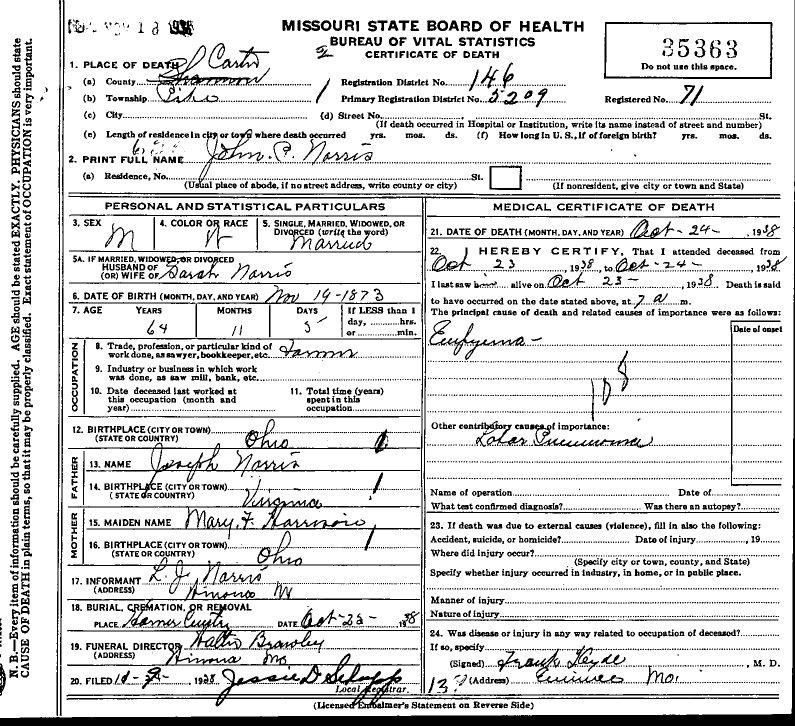 MISSOURI STATE BOARD OF HEALTH
BUREAU OF VITAL STATISTICS
CERTIFICATE OF DEATH
35363
Do not use this space.
1. PLACE OF DEATH
Carter
(a) County Shannon
Registration District No. 146
(b) Township Pike
Primary Registration District No. 5209
Registered No. 71
(c) City
(d) Street No. St.
(If death occurred in Hospital or Institution, write its name instead of street and number)
(e) Length of residence in city or town where death occurred yrs. mos. ds. (f) How long in U. S., if of foreign birth? yrs. mos. ds.
2. PRINT FULL NAME John. P. Norris
(a) Residence, No. St.
(Usual place of abode, if no street address, write county or city) (If nonresident, give city or town and State)
PERSONAL AND STATISTICAL PARTICULARS
3. SEX M
4. COLOR OR RACE W
5. SINGLE, MARRIED, WIDOWED, OR DIVORCED (write the word) Married
5A. IF MARRIED, WIDOWED, OR DIVORCED
HUSBAND OF
(OR) WIFE OF Sarah Norris
6. DATE OF BIRTH (MONTH, DAY, AND YEAR) Nov 19-1873
7. AGE YEARS MONTHS DAYS If LESS than 1
day, hrs.
or min.
64 11 5
OCCUPATION
8. Trade, profession, or particular kind of
work done, as sawyer, bookkeeper, etc. Farmer
9. Industry or business in which work
was done, as saw mill, bank, etc.
10. Date deceased last worked at
this occupation (month and
year)
11. Total time (years)
spent in this
occupation
12. BIRTHPLACE (CITY OR TOWN)
(STATE OR COUNTRY) Ohio
FATHER
13. NAME Joseph Norris
14. BIRTHPLACE (CITY OR TOWN)
(STATE OR COUNTRY) Virginia
MOTHER
15. MAIDEN NAME Mary. F. Harrison
16. BIRTHPLACE (CITY OR TOWN)
(STATE OR COUNTRY) Ohio
17. INFORMANT L. J. Norris
(ADDRESS) Winona M
18. BURIAL, CREMATION, OR REMOVAL
PLACE DATE Oct-25- 1938
19. FUNERAL DIRECTOR Walter Brawley
(ADDRESS) Winona Mo.
20. FILED 1938 Jessie D
Local Registrar.
MEDICAL CERTIFICATE OF DEATH
21. DATE OF DEATH (MONTH, DAY, AND YEAR) Oct-24- , 1938
22. I HEREBY CERTIFY, That I attended deceased from
Oct 23 , 1938, to Oct-24- , 1938
I last saw him alive on Oct 23- , 1938 Death is said
to have occurred on the date stated above, at 7 a m.
The principal cause of death and related causes of importance were as follows:
Date of onset
Empyema-
108
Other contributory causes of importance:
Lobar Pneumonia
Name of operation Date of
What test confirmed diagnosis? Was there an autopsy?
23. If death was due to external causes (violence), fill in also the following:
Accident, suicide, or homicide? Date of injury , 19
Where did injury occur?
(Specify city or town, county, and State)
Specify whether injury occurred in industry, in home, or in public place.
Manner of injury
Nature of injury
24. Was disease or injury in any way related to occupation of deceased?
If so, specify
(Signed) Frank Hyde , M. D.
(Address) Eminence Mo.
(Licensed Embalmer's Statement on Reverse Side)
N. B.—Every item of information should be carefully supplied. AGE should be stated EXACTLY. PHYSICIANS should state
CAUSE OF DEATH in plain terms, so that it may be properly classified. Exact statement of OCCUPATION is very important.